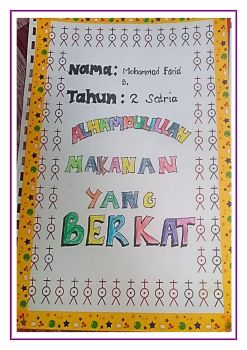 Nama: Mohammad Farid
B.
Tahun: 2 Satria
ALHAMDULILLAH
MAKANAN
YANG
BERKAT